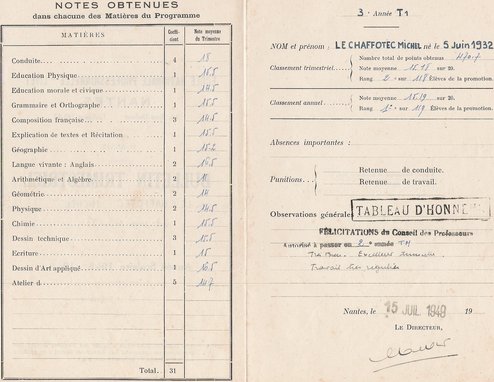 NOTES OBTENUES
dans chacune des Matières du Programme
MATIÈRES
Coeffi-
cient
Note moyenne
du Trimestre
Conduite 4 15
Education Physique 1 15.5
Education morale et civique 1 14.5
Grammaire et Orthographe 1 15.5
Composition française 3 14.5
Explication de textes et Récitation 1 15.5
Géographie 1 15.2
Langue vivante : Anglais 2 15.5
Arithmétique et Algèbre 2
Géométrie 2 14
Physique 2 14.5
Chimie 1 15.5
Dessin technique 3 15.5
Ecriture 1 15
Dessin d'Art appliqué 1 16.5
Atelier d 5 14.7
Total 31
3e Année T1
NOM et prénom : LE CHAFFOTEC MICHEL né le 5 Juin 1932
Nombre total de points obtenus
Classement trimestriel Note moyenne 15.18 sur 20.
Rang 2e sur 118 Elèves de la promotion.
Classement annuel Note moyenne 15.19 sur 20.
Rang 1er sur 119 Elèves de la promotion.
Absences importantes :
Punitions Retenue de conduite.
Retenue de travail.
Observations générales TABLEAU D'HONNEUR
FÉLICITATIONS du Conseil des Professeurs
Autorisé à passer en 2e année TM
Excellent
Travail très régulier
Nantes, le 15 JUIL 1949 19
LE DIRECTEUR,